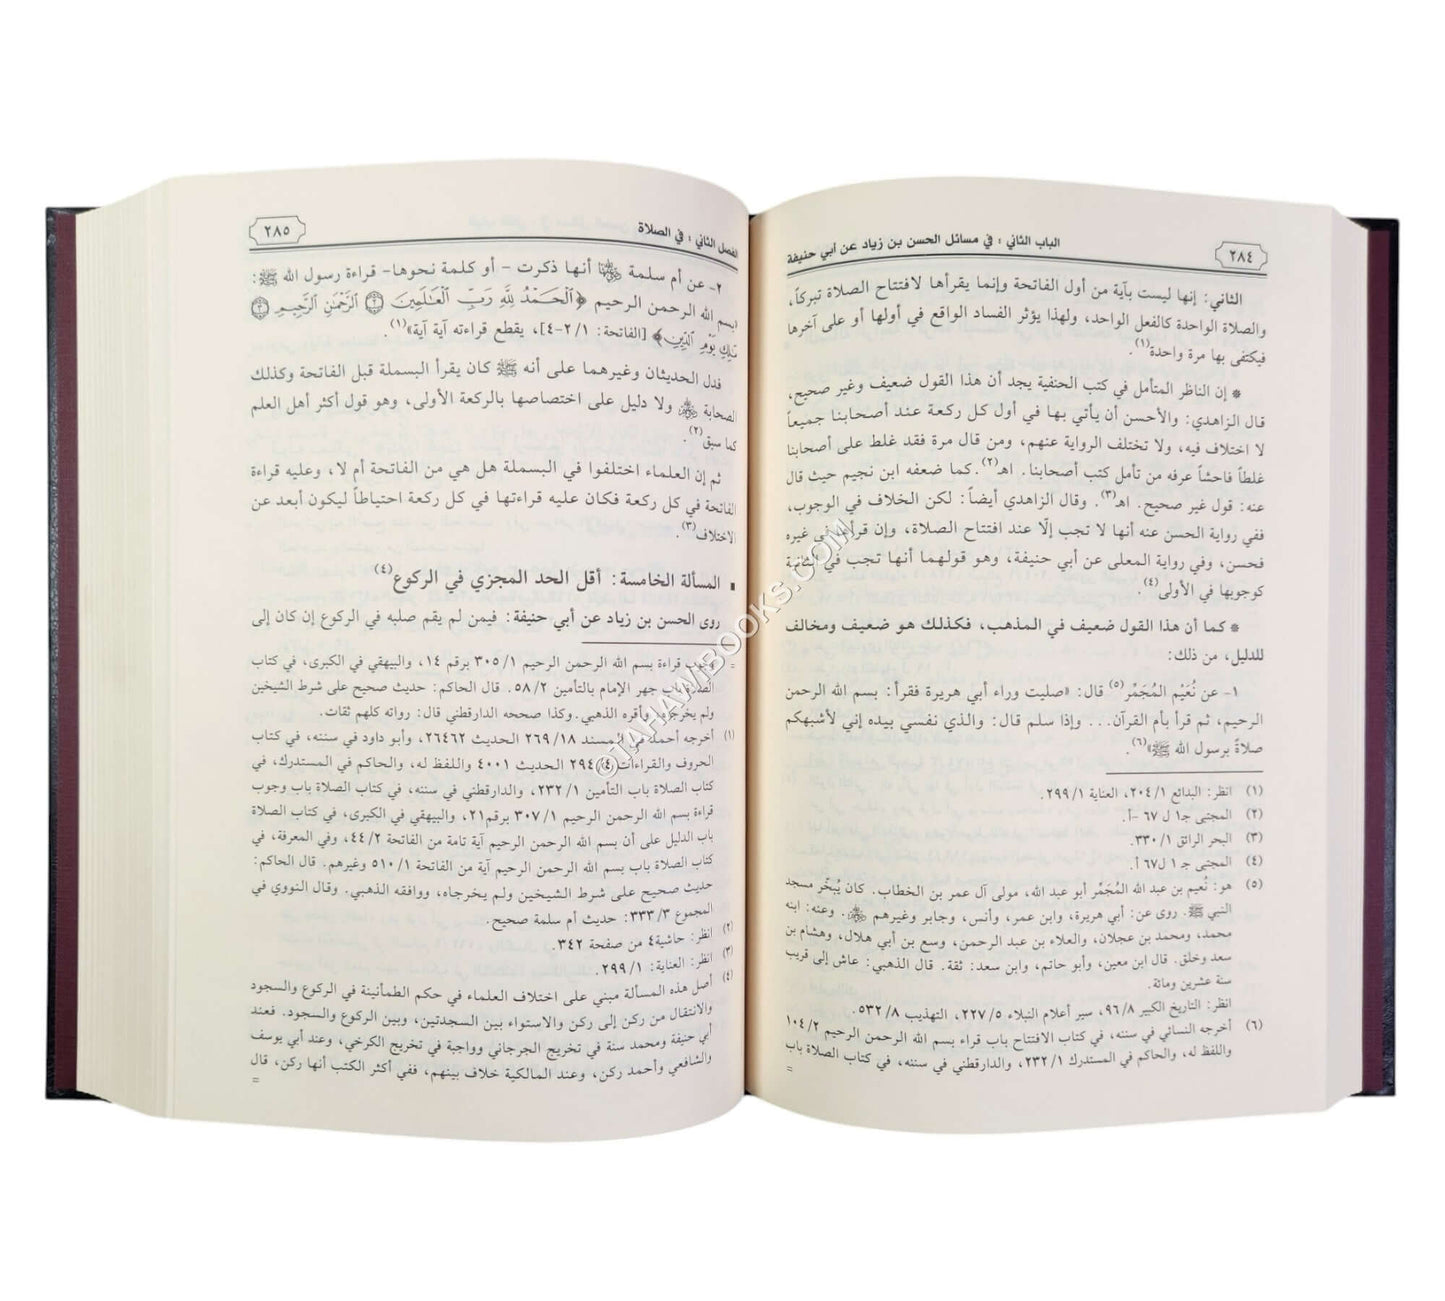 ٢٨٤
الباب الثاني : في مسائل الحسن بن زياد عن أبي حنيفة
الثاني: إنها ليست بآية من أول الفاتحة وإنما يقرأها لافتتاح الصلاة تبركاً،
والصلاة الواحدة كالفعل الواحد، ولهذا يؤثر الفساد الواقع في أولها أو على آخرها
فيكتفى بها مرة واحدة(١).
* إن الناظر المتأمل في كتب الحنفية يجد أن هذا القول ضعيف وغير صحيح،
قال الزاهدي: والأحسن أن يأتي بها في أول كل ركعة عند أصحابنا جميعاً
لا اختلاف فيه، ولا تختلف الرواية عنهم، ومن قال مرة فقد غلط على أصحابنا
غلطاً فاحشاً عرفه من تأمل كتب أصحابنا. اهـ(٢). كما ضعفه ابن نجيم حيث قال
عنه: قول غير صحيح. اهـ(٣). وقال الزاهدي أيضاً: لكن الخلاف في الوجوب،
ففي رواية الحسن عنه أنها لا تجب إلّا عند افتتاح الصلاة، وإن قرأها في غيره
فحسن، وفي رواية المعلى عن أبي حنيفة، وهو قولهما أنها تجب في الثانية
كوجوبها في الأولى(٤).
* كما أن هذا القول ضعيف في المذهب، فكذلك هو ضعيف ومخالف
للدليل، من ذلك:
١- عن نُعَيْم المُجَمِّر(٥) قال: «صليت وراء أبي هريرة فقرأ: بسم الله الرحمن
الرحيم، ثم قرأ بأم القرآن... وإذا سلم قال: والذي نفسي بيده إني لأشبهكم
صلاةً برسول الله ﷺ»(٦).
(١) انظر: البدائع ٢٠٤/١، العناية ٢٩٩/١.
(٢) المجتبى جـ١ ل ٦٧ -أ.
(٣) البحر الرائق ٣٣٠/١.
(٤) المجتبى جـ ١ ل٦٧ أ.
(٥) هو: نُعيم بن عبد الله المُجَمِّر أبو عبد الله، مولى آل عمر بن الخطاب. كان يُبخّر مسجد
النبي ﷺ. روى عن: أبي هريرة، وابن عمر، وأنس، وجابر وغيرهم. وعنه: ابنه
محمد، ومحمد بن عجلان، والعلاء بن عبد الرحمن، وسع بن أبي هلال، وهشام بن
سعد وخلق. قال ابن معين، وأبو حاتم، وابن سعد: ثقة. قال الذهبي: عاش إلى قريب
سنة عشرين ومائة.
انظر: التاريخ الكبير ٩٦/٨، سير أعلام النبلاء ٢٢٧/٥، التهذيب ٥٣٢/٨.
(٦) أخرجه النسائي في سننه، في كتاب الافتتاح باب قراء بسم الله الرحمن الرحيم ١٠٤/٢
واللفظ له، والحاكم في المستدرك ٢٣٢/١، والدارقطني في سننه، في كتاب الصلاة باب
=
الفصل الثاني : في الصلاة
٢٨٥
٢- عن أم سلمة أنها ذكرت - أو كلمة نحوها- قراءة رسول الله ﷺ:
بسم الله الرحمن الرحيم ﴿ٱلْحَمْدُ لِلَّهِ رَبِّ ٱلْعَـٰلَمِينَ ۝ ٱلرَّحْمَـٰنِ ٱلرَّحِيمِ ۝
مَـٰلِكِ يَوْمِ ٱلدِّينِ﴾ [الفاتحة: ٢/١-٤]، يقطع قراءته آية آية»(١).
فدل الحديثان وغيرهما على أنه ﷺ كان يقرأ البسملة قبل الفاتحة وكذلك
الصحابة ولا دليل على اختصاصها بالركعة الأولى، وهو قول أكثر أهل العلم
كما سبق(٢).
ثم إن العلماء اختلفوا في البسملة هل هي من الفاتحة أم لا، وعليه قراءة
الفاتحة في كل ركعة فكان عليه قراءتها في كل ركعة احتياطاً ليكون أبعد عن
الاختلاف(٣).
▪ المسألة الخامسة: أقل الحد المجزي في الركوع(٤)
روى الحسن بن زياد عن أبي حنيفة: فيمن لم يقم صلبه في الركوع إن كان إلى
= وجوب قراءة بسم الله الرحمن الرحيم ٣٠٥/١ برقم ١٤، والبيهقي في الكبرى، في كتاب
الصلاة باب جهر الإمام بالتأمين ٥٨/٢. قال الحاكم: حديث صحيح على شرط الشيخين
ولم يخرجاه، وأقره الذهبي. وكذا صححه الدارقطني قال: رواته كلهم ثقات.
(١) أخرجه أحمد في المسند ٢٦٩/١٨ الحديث ٢٦٤٦٢، وأبو داود في سننه، في كتاب
الحروف والقراءات(٤) ٢٩٤ الحديث ٤٠٠١ واللفظ له، والحاكم في المستدرك، في
كتاب الصلاة باب التأمين ٢٣٢/١، والدارقطني في سننه، في كتاب الصلاة باب وجوب
قراءة بسم الله الرحمن الرحيم ٣٠٧/١ برقم٢١، والبيهقي في الكبرى، في كتاب الصلاة
باب الدليل على أن بسم الله الرحمن الرحيم آية تامة من الفاتحة ٤٤/٢، وفي المعرفة، في
كتاب الصلاة باب بسم الله الرحمن الرحيم آية من الفاتحة ٥١٠/١ وغيرهم. قال الحاكم:
حديث صحيح على شرط الشيخين ولم يخرجاه، ووافقه الذهبي. وقال النووي في
المجموع ٣٣٣/٣: حديث أم سلمة صحيح.
(٢) انظر: حاشية٤ من صفحة ٣٤٢.
(٣) انظر: العناية: ٢٩٩/١.
(٤) أصل هذه المسألة مبني على اختلاف العلماء في حكم الطمأنينة في الركوع والسجود
والانتقال من ركن إلى ركن والاستواء بين السجدتين، وبين الركوع والسجود. فعند
أبي حنيفة ومحمد سنة في تخريج الجرجاني وواجبة في تخريج الكرخي، وعند أبي يوسف
والشافعي وأحمد ركن، وعند المالكية خلاف بينهم، ففي أكثر الكتب أنها ركن، قال
=
©TAHAWIBOOKS.COM